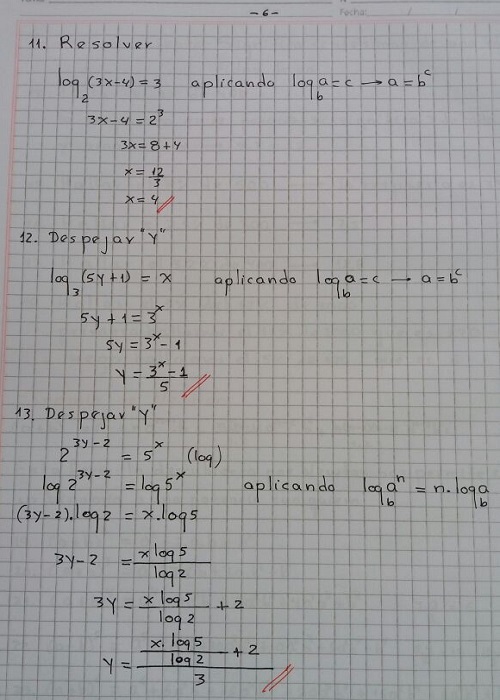 -6-
Fecha: / /
11. Resolver
log₂(3x-4) = 3 aplicando log_b a = c → a = b^c
3x-4 = 2³
3x = 8+4
x = 12/3
x = 4
12. Despejar "Y"
log₃(5y+1) = x aplicando log_b a = c → a = b^c
5y+1 = 3^x
5y = 3^x - 1
y = (3^x - 1)/5
13. Despejar "Y"
2^(3y-2) = 5^x (log)
log 2^(3y-2) = log 5^x aplicando log_b a^n = n. log_b a
(3y-2). log 2 = x. log 5
3y-2 = (x log 5)/(log 2)
3y = (x log 5)/(log 2) + 2
y = ((x. log 5)/(log 2) + 2)/3